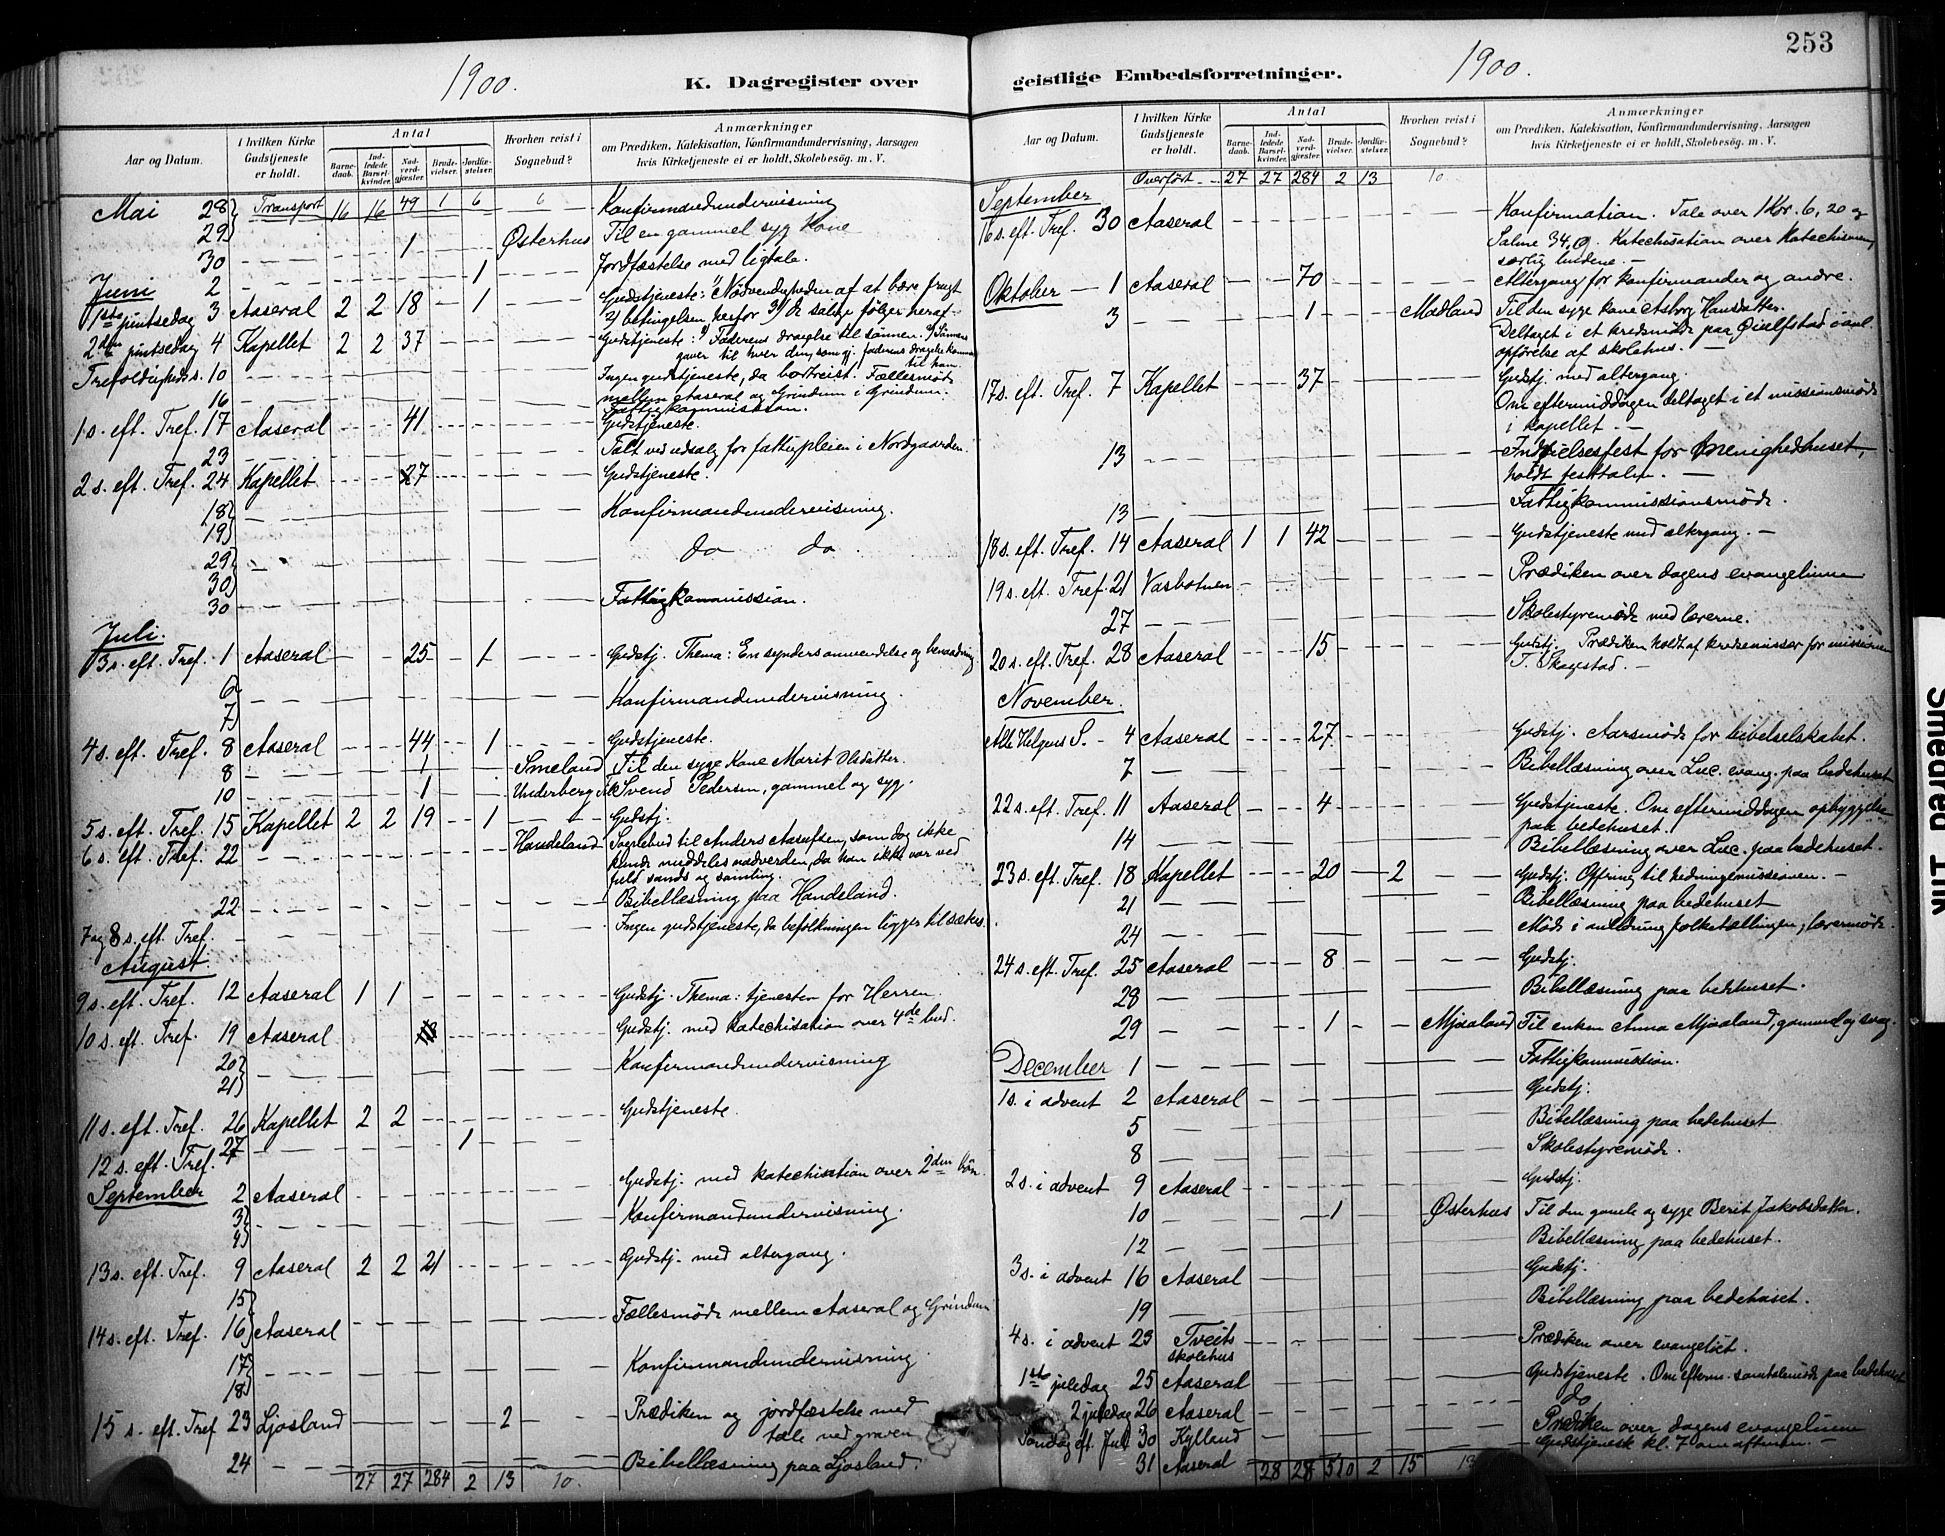 253
1900.
K. Dagregister over
Aar og Datum.
I hvilken Kirke Gudstjeneste er holdt.
Antal
Barnedaab.
Indledede Barselkvinder.
Nadverdgjæster.
Brudevielser.
Jordfæstelser.
Hvorhen reist i Sognebud?
Anmærkninger
om Prædiken, Katekisation, Konfirmandundervisning, Aarsagen
hvis Kirketjeneste ei er holdt, Skolebesög. m. V.
Mai 28 Transport 16 16 49 1 6 6 Konfirmandundervisning
29 1 Østerhus Til en gammel syg Kone
30 1 Jordfæstelse med ligtale.
Juni 2
1ste pintsedag 3 Aaseral 2 2 18 1 Gudstjeneste: 1) Nødvendigheden af at bære frugt
2) betingelsen herfor 3) de salige følger heraf
2den pintsedag 4 Kapellet 2 2 37 Gudstjeneste: 1) Faderens dragelse til sönnen. 2) Sönnens
gaver til hver den, som gj. faderens dragelse kommer
til ham
Trefoldigheds s. 10 Ingen gudstjeneste, da bortreist. Fællesmöde
mellem Aaseral og Grindum i Grindum.
16 Fattigkommission.
1 s. eft. Tref. 17 Aaseral 41 Gudstjeneste.
23 Talt ved udsalg for fattigpleien i Nordgaarden.
2 s. eft. Tref. 24 Kapellet 27 Gudstjeneste.
18 Konfirmandundervisning.
19
29 do do
30
30 Fattigkommission.
Juli.
3 s. eft. Tref. 1 Aaseral 25 1 Gudstj. Thema: En synders omvendelse og benaadning
6 Konfirmandundervisning.
7
4 s. eft. Tref. 8 Aaseral 44 1 Gudstjeneste.
8 1 Smeland Til den syge Kone Marit Olsdatter.
10 1 Underberg Til Svend Pedersen, gammel og syg.
5 s. eft. Tref. 15 Kapellet 2 2 19 1 Gudstj.
6 s. eft. Tref. 22 Handeland Sognebud til Anders Aasulfsen, som dog ikke
kunde meddeles nadverden, da han ikke var ved
fuld sands og samling.
22 Bibellæsning paa Handeland.
7 og 8 s. eft. Tref. Ingen gudstjeneste, da befolkningen ligger til sæters.
August.
9 s. eft. Tref. 12 Aaseral 1 1 Gudstj. Thema: tjenesten for Herren.
10 s. eft. Tref. 19 Aaseral Gudstj. med katechisation over 4de bud.
20 Konfirmandundervisning
21
11 s. eft. Tref. 26 Kapellet 2 2 Gudstjeneste.
27 1
12 s. eft. Tref.
September 2 Aaseral Gudstj. med katechisation over 2den bön.
3 Konfirmandundervisning.
4
13 s. eft. Tref. 9 Aaseral 2 2 21 Gudstj. med altergang.
15 Fællesmöde mellem Aaseral og Grindum
14 s. eft. Tref. 16 Aaseral
17 Konfirmandundervisning.
18
15 s. eft. Tref 23 Ljosland 2 Prædiken og jordfæstelse med
tale ved graven
24 Bibellæsning paa Ljosland.
27 27 284 2 13 10.
geistlige Embedsforretninger.
1900.
Aar og Datum.
I hvilken Kirke Gudstjeneste er holdt.
Antal
Barnedaab.
Indledede Barselkvinder.
Nadverdgjæster.
Brudevielser.
Jordfæstelser.
Hvorhen reist i Sognebud?
Anmærkninger
om Prædiken, Katekisation, Konfirmandundervisning, Aarsagen
hvis Kirketjeneste ei er holdt, Skolebesög. m. V.
Overført 27 27 284 2 13 10
September
16 s. eft. Tref. 30 Aaseral Konfirmation. Tale over 1 Kor. 6, 20 og
Salme 34, 9. Katechisation over Katechismen,
særlig budene.
Oktober 1 Aaseral 70 Altergang for konfirmander og andre.
3 1 Madland Til den syge kone Asborg Hansdatter.
Deltaget i et kredsmöde paa Qvalfstad om
opførelse af skolehus.
17 s. eft. Tref. 7 Kapellet 37 Gudstj. med altergang.
Om eftermiddagen deltaget i et missionsmöde
i kapellet.
13 Indvielsesfest for Foreningshedhuset,
holdt festtalen.
13 Fattigkommissionsmöde.
18 s. eft. Tref. 14 Aaseral 1 1 42 Gudstjeneste med altergang.
19 s. eft. Tref. 21 Vasbotnen Prædiken over dagens evangelium
27 Skolestyremöde med lærerne.
20 s. eft. Tref. 28 Aaseral 15 Gudstj. Prædiken holdt af kredsemissær for missionen
T. Skagestad.
November.
Alle Helgens S. 4 Aaseral 27 Gudstj. Aarsmöde for bibelselskabet.
7 Bibellæsning over Luc. evang. paa bedehuset
22 s. eft. Tref. 11 Aaseral 4 Gudstjeneste. Om eftermiddagen opbyggelse
paa bedehuset.
14 Bibellæsning over Luc. paa bedehuset.
23 s. eft. Tref. 18 Kapellet 20 2 Gudstj. Offring til hedningemissionen.
21 Bibellæsning paa bedehuset
24 Möde i anledning folketællingen, lærermöde.
24 s. eft. Tref. 25 Aaseral 8 Gudstj.
28 Bibellæsning paa bedehuset.
29 1 Mjaaland Til enken Anna Mjaaland, gammel og svag.
December 1 Fattigkommission.
1 s. i advent 2 Aaseral Gudstj.
5 Bibellæsning paa bedehuset
8 Skolestyremöde.
2 s. i advent 9 Aaseral Gudstj.
10 1 Østerhus Til den gamle og syge Berit Jakobsdatter.
12 Bibellæsning paa bedehuset.
3 s. i advent 16 Aaseral Gudstj.
19 Bibellæsning paa bedehuset.
4 s. i advent 23 Tveits skolehus Prædiken over evangeliet.
1ste juledag 25 Aaseral Gudstjeneste. Om efterm. samtalemöde paa bedehuset
2 juledag 26 Aaseral do
Söndag eft. Jul 30 Kylland Prædiken over dagens evangelium
31 Aaseral Gudstjeneste kl. 7 om aftenen.
28 28 510 2 15 13
Smedrød Trik